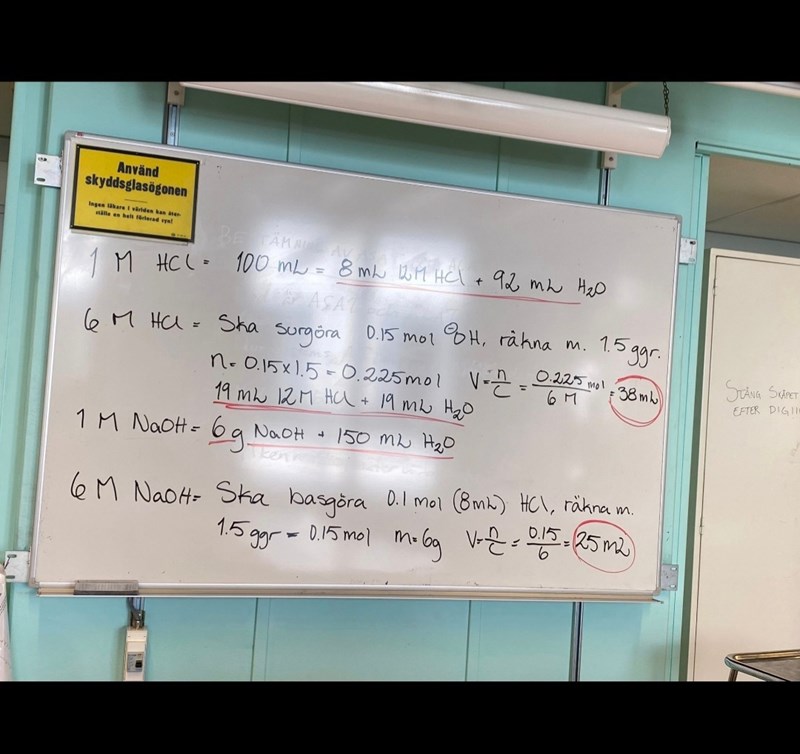 Använd
skyddsglasögonen
Ingen läkare i världen kan åter-
ställa en helt förlorad syn!
1 M HCl = 100 mL = 8 mL 12M HCl + 92 mL H₂O
6 M HCl = Ska surgöra 0.15 mol ⊖OH, räkna m. 1.5 ggr.
n = 0.15 x 1.5 = 0.225 mol V = n/c = 0.225 mol/6 M = 38 mL
19 mL 12M HCl + 19 mL H₂O
1 M NaOH = 6 g NaOH + 150 mL H₂O
6 M NaOH = Ska basgöra 0.1 mol (8 mL) HCl, räkna m.
1.5 ggr = 0.15 mol m = 6g V = n/c = 0.15/6 = 25 mL
STÄNG SKÅPET
EFTER DIG!!